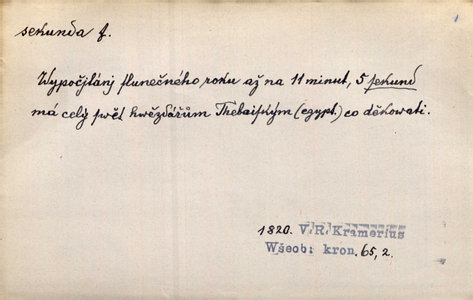 sekunda f.
1
Wypočjtánj slunečného roku až na 11 minut, 5 sekund
má celý swět hwězdářům Thebaiským (egypt.) co děkowati.
1820. V. R. Kramerius
Wšeob: kron. 65, 2.